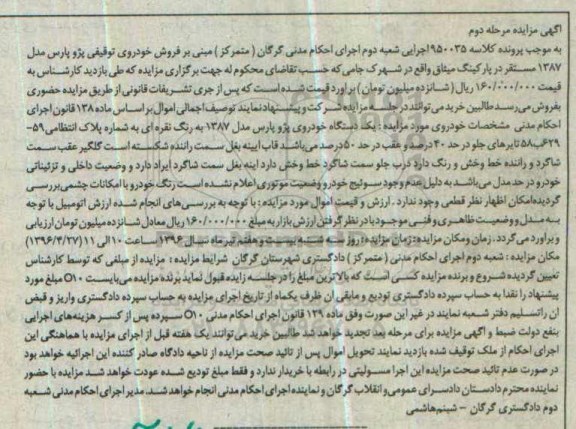 آگهی مزایده مرحله دوم
به موجب پرونده کلاسه ۹۵۰۰۳۵ اجرایی شعبه دوم اجرای احکام مدنی گرگان ( متمرکز ) مبنی بر فروش خودروی توقیفی پژو پارس مدل
۱۳۸۷ مستقر در پارکینگ میثاق واقع در شهرک جامی که حسب تقاضای محکوم له جهت برگزاری مزایده که طی بازدید کارشناس به
قیمت ۱۶۰/۰۰۰/۰۰۰ ریال ( شانزده میلیون تومان ) برآورد قیمت شده است که پس از جری تشریفات قانونی از طریق مزایده حضوری
بفروش می‌رسد طالبین خرید می‌توانند در جلسه مزایده شرکت و پیشنهاد نمایند توصیف اجمالی اموال بر اساس ماده ۱۳۸ قانون اجرای
احکام مدنی مشخصات خودروی مورد مزایده : یک دستگاه خودروی پژو پارس مدل ۱۳۸۷ به رنگ نقره ای به شماره پلاک انتظامی ۵۹-
۶۲۹ب۵۸ تایرهای جلو در حد ۴۰درصد و عقب در حد ۵۰درصد می‌باشد قاب آیینه بغل سمت راننده شکسته است گلگیر عقب سمت
شاگرد و راننده خط وخش و رنگ دارد درب جلو سمت شاگرد خط وخش دارد اینه بغل سمت شاگرد ایراد دارد و وضعیت داخلی و تزئیناتی
خودرو در حد مدل می‌باشد به دلیل عدم وجود سوئیچ خودرو وضعیت موتوری اعلام نشده است رنگ خودرو با امکانات چشمی بررسی
گردیده امکان اظهار نظر قطعی وجود ندارد . ارزش و قیمت اموال مورد مزایده : با توجه به بررسی های انجام شده ارزش اتومبیل با توجه
به مدل و وضعیت ظاهری و فنی موجود با در نظر گرفتن ارزش بازار به مبلغ ۱۶۰/۰۰۰/۰۰۰ ریال معادل شانزده میلیون تومان ارزیابی
و برآورد می گردد . زمان ومکان مزایده : زمان مزایده : روز سه شنبه بیست و هفتم تیر ماه سال ۱۳۹۶ ساعت ۱۰ الی ۱۱ (۱۳۹۶/۴/۲۷)
مکان مزایده : شعبه دوم اجرای احکام مدنی ( متمرکز ) دادگستری شهرستان گرگان شرایط مزایده : مزایده از مبلغی که توسط کارشناس
تعیین گردیده شروع و برنده مزایده کسی است که بالاترین مبلغ را در جلسه زایده قبول نماید برنده مزایده می‌بایست ۱۰٪ مبلغ مورد
پیشنهاد را نقدا به حساب سپرده دادگستری تودیع و مابقی ان ظرف یکماه از تاریخ اجرای مزایده به حساب سپرده دادگستری واریز و قبض
ان راتسلیم دفتر شعبه نمایند در غیر این صورت وفق ماده ۱۲۹ قانون اجرای احکام مدنی ۱۰٪ سپرده پس از کسر هزینه‌های اجرایی
بنفع دولت ضبط و اگهی مزایده برای مرحله بعد تجدید خواهد شد طالبین خرید می توانند یک هفته قبل از اجرای مزایده با هماهنگی این
اجرای احکام از ملک توقیف شده بازدید نمایند تحویل اموال پس از تائید صحت مزایده از ناحیه دادگاه صادر کننده این اجرائیه خواهد بود
در صورت عدم تائید صحت مزایده این اجرا مسولیتی در رابطه با خریدار ندارد و فقط مبلغ تودیع شده عودت خواهد شد مزایده با حضور
نماینده محترم دادستان دادسرای عمومی وانقلاب گرگان و نماینده اجرای احکام مدنی انجام خواهد شد . مدیر اجرای احکام مدنی شعبه
دوم دادگستری گرگان – شبنم‌هاشمی